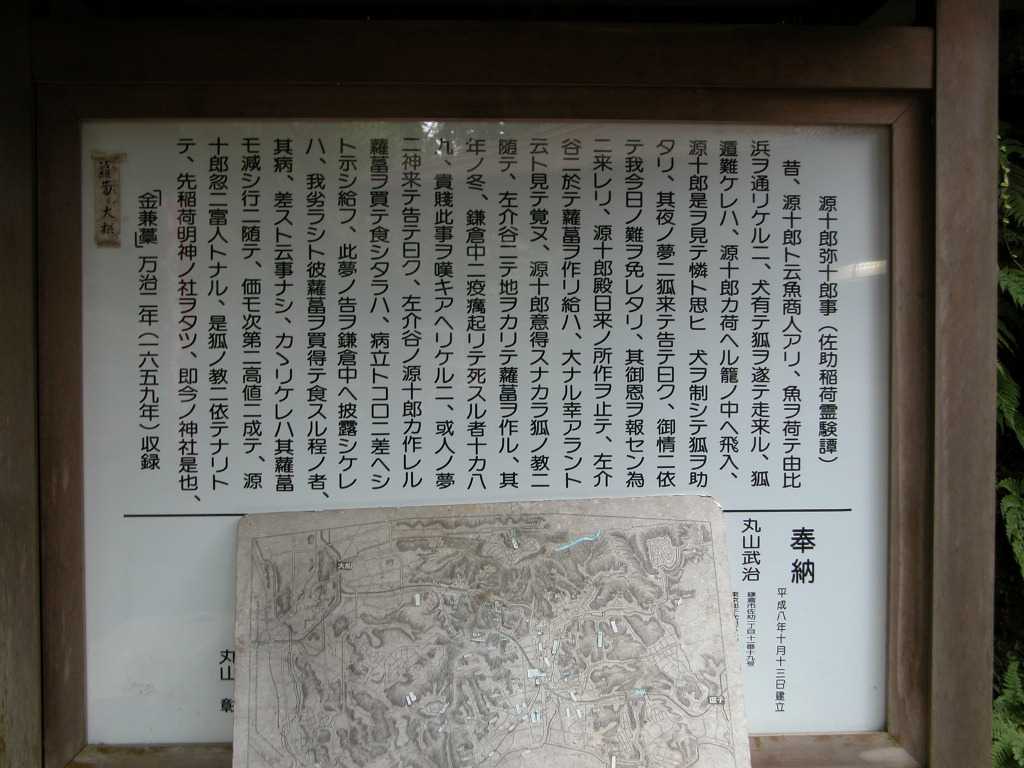 源十郎弥十郎事（佐助稲荷霊験譚）
昔、源十郎ト云魚商人アリ、魚ヲ荷テ由比
浜ヲ通リケルニ、犬有テ狐ヲ遂テ走来ル、狐
遁難ケレハ、源十郎カ荷ヘル籠ノ中ヘ飛入、
源十郎是ヲ見テ憐ト思ヒ　犬ヲ制シテ狐ヲ助
タリ、其夜ノ夢ニ狐来テ告テ曰ク、御情ニ依
テ我今日ノ難ヲ免レタリ、其御恩ヲ報セン為
ニ来レリ、源十郎殿日来ノ所作ヲ止テ、左介
谷ニ於テ蘿蔔ヲ作リ給ハ、大ナル幸アラント
云ト見テ覚ヌ、源十郎意得スナカラ狐ノ教ニ
随テ、左介谷ニテ地ヲカリテ蘿蔔ヲ作ル、其
年ノ冬、鎌倉中ニ疫癘起リテ死スル者十カ八
九、貴賤此事ヲ嘆キアヘリケルニ、或人ノ夢
ニ神来テ告テ曰ク、左介谷ノ源十郎カ作レル
蘿蔔ヲ買テ食シタラハ、病立トコロニ差ヘシ
ト示シ給フ、此夢ノ告ヲ鎌倉中ヘ披露シケレ
ハ、我劣ラシト彼蘿蔔ヲ買得テ食スル程ノ者、
其病、差スト云事ナシ、カヽリケレハ其蘿蔔
モ減シ行ニ随テ、価モ次第ニ高値ニ成テ、源
十郎忽ニ富人トナル、是狐ノ教ニ依テナリト
テ、先稲荷明神ノ社ヲタツ、即今ノ神社是也、
「金兼藁」万治二年（一六五九年）収録
大根
奉納
平成八年十月十三日建立
鎌倉市佐助二丁目十二番十九号
丸山武治
丸山　章
大船
逗子